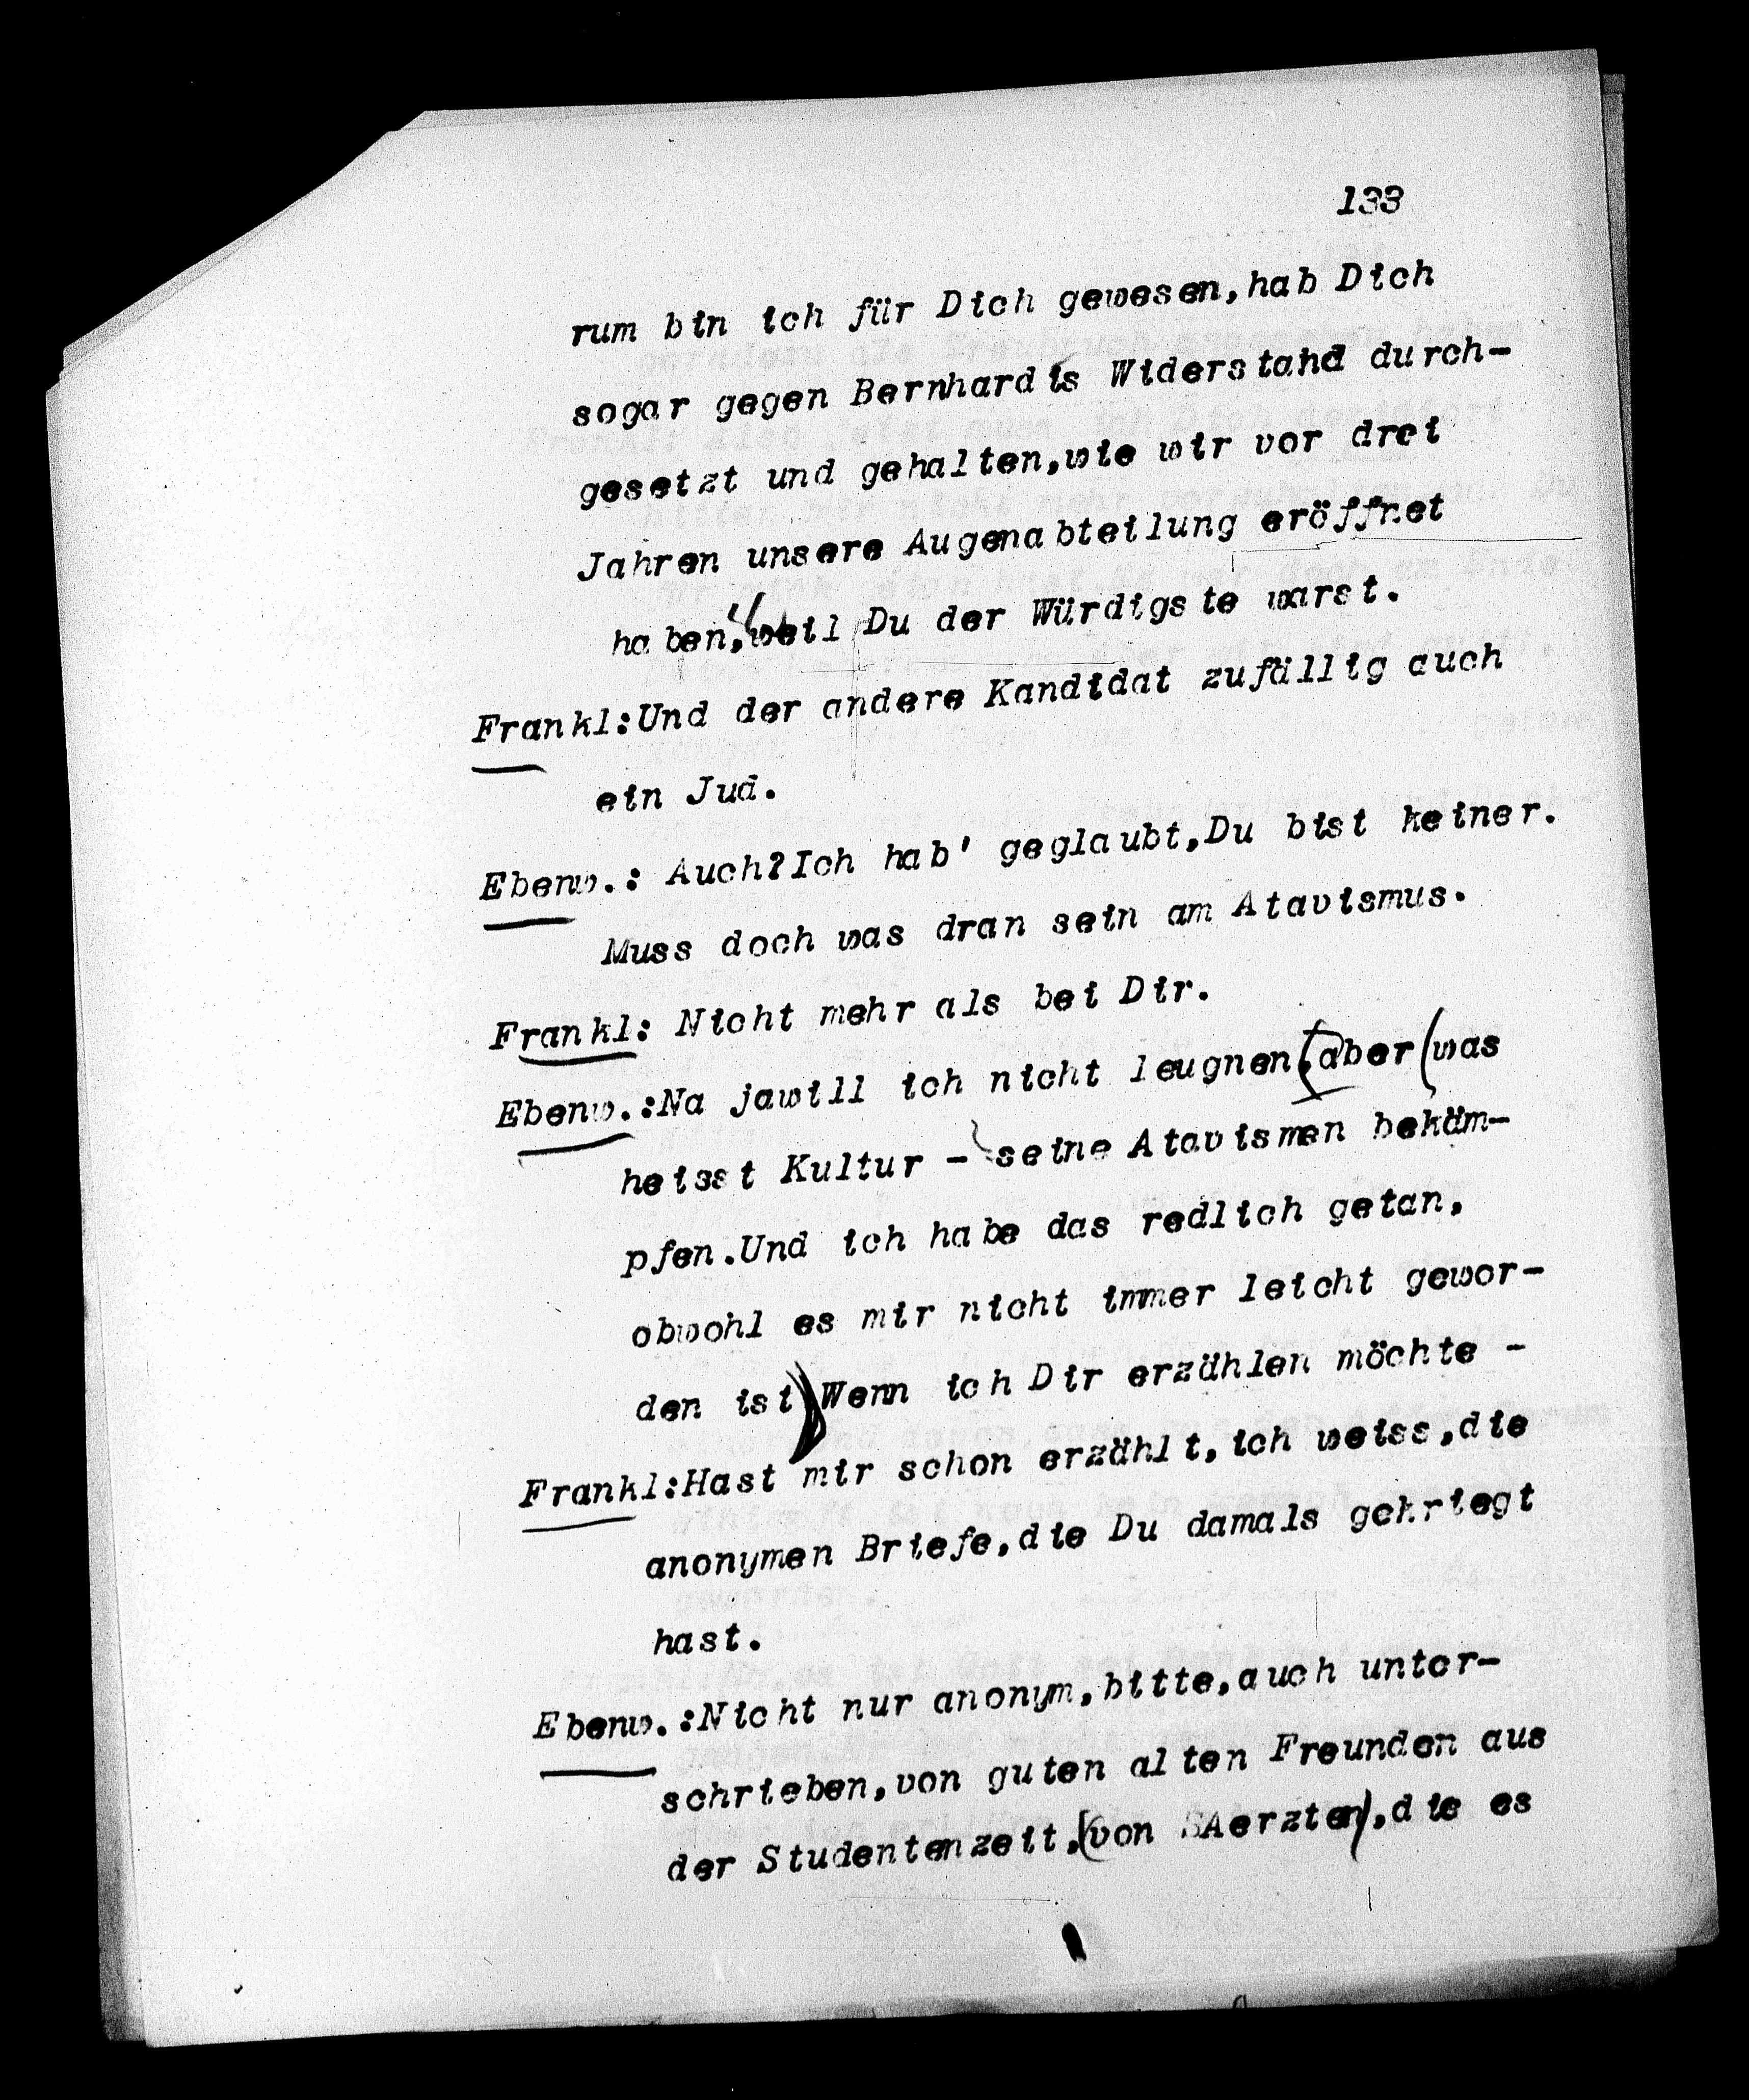 133
rum bin ich für Dich gewesen,hab Dich
sogar gegen Bernhardis Widerstand durch-
gesetzt und gehalten,wie wir vor drei
Jahren unsere Augenabteilung eröffnet
haben,weil Du der Würdigste warst.
Frankl:Und der andere Kandidat zufällig auch
ein Jud.
Ebenw.: Auch?Ich hab' geglaubt,Du bist keiner.
Muss doch was dran sein am Atavismus.
Frankl: Nicht mehr als bei Dir.
Ebenw.:Na jawill ich nicht leugnen(,aber(was
heisst Kultur - seine Atavismen bekäm-
pfen.Und ich habe das redlich getan,
obwohl es mir nicht immer leicht gewor-
den ist)Wenn ich Dir erzählen möchte -
Frankl:Hast mir schon erzählt,ich weiss,die
anonymen Briefe,die Du damals gekriegt
hast.
Ebenw.:Nicht nur anonym,bitte,auch unter-
schrieben,von guten alten Freunden aus
der Studentenzeit,(von Aerzten),die es